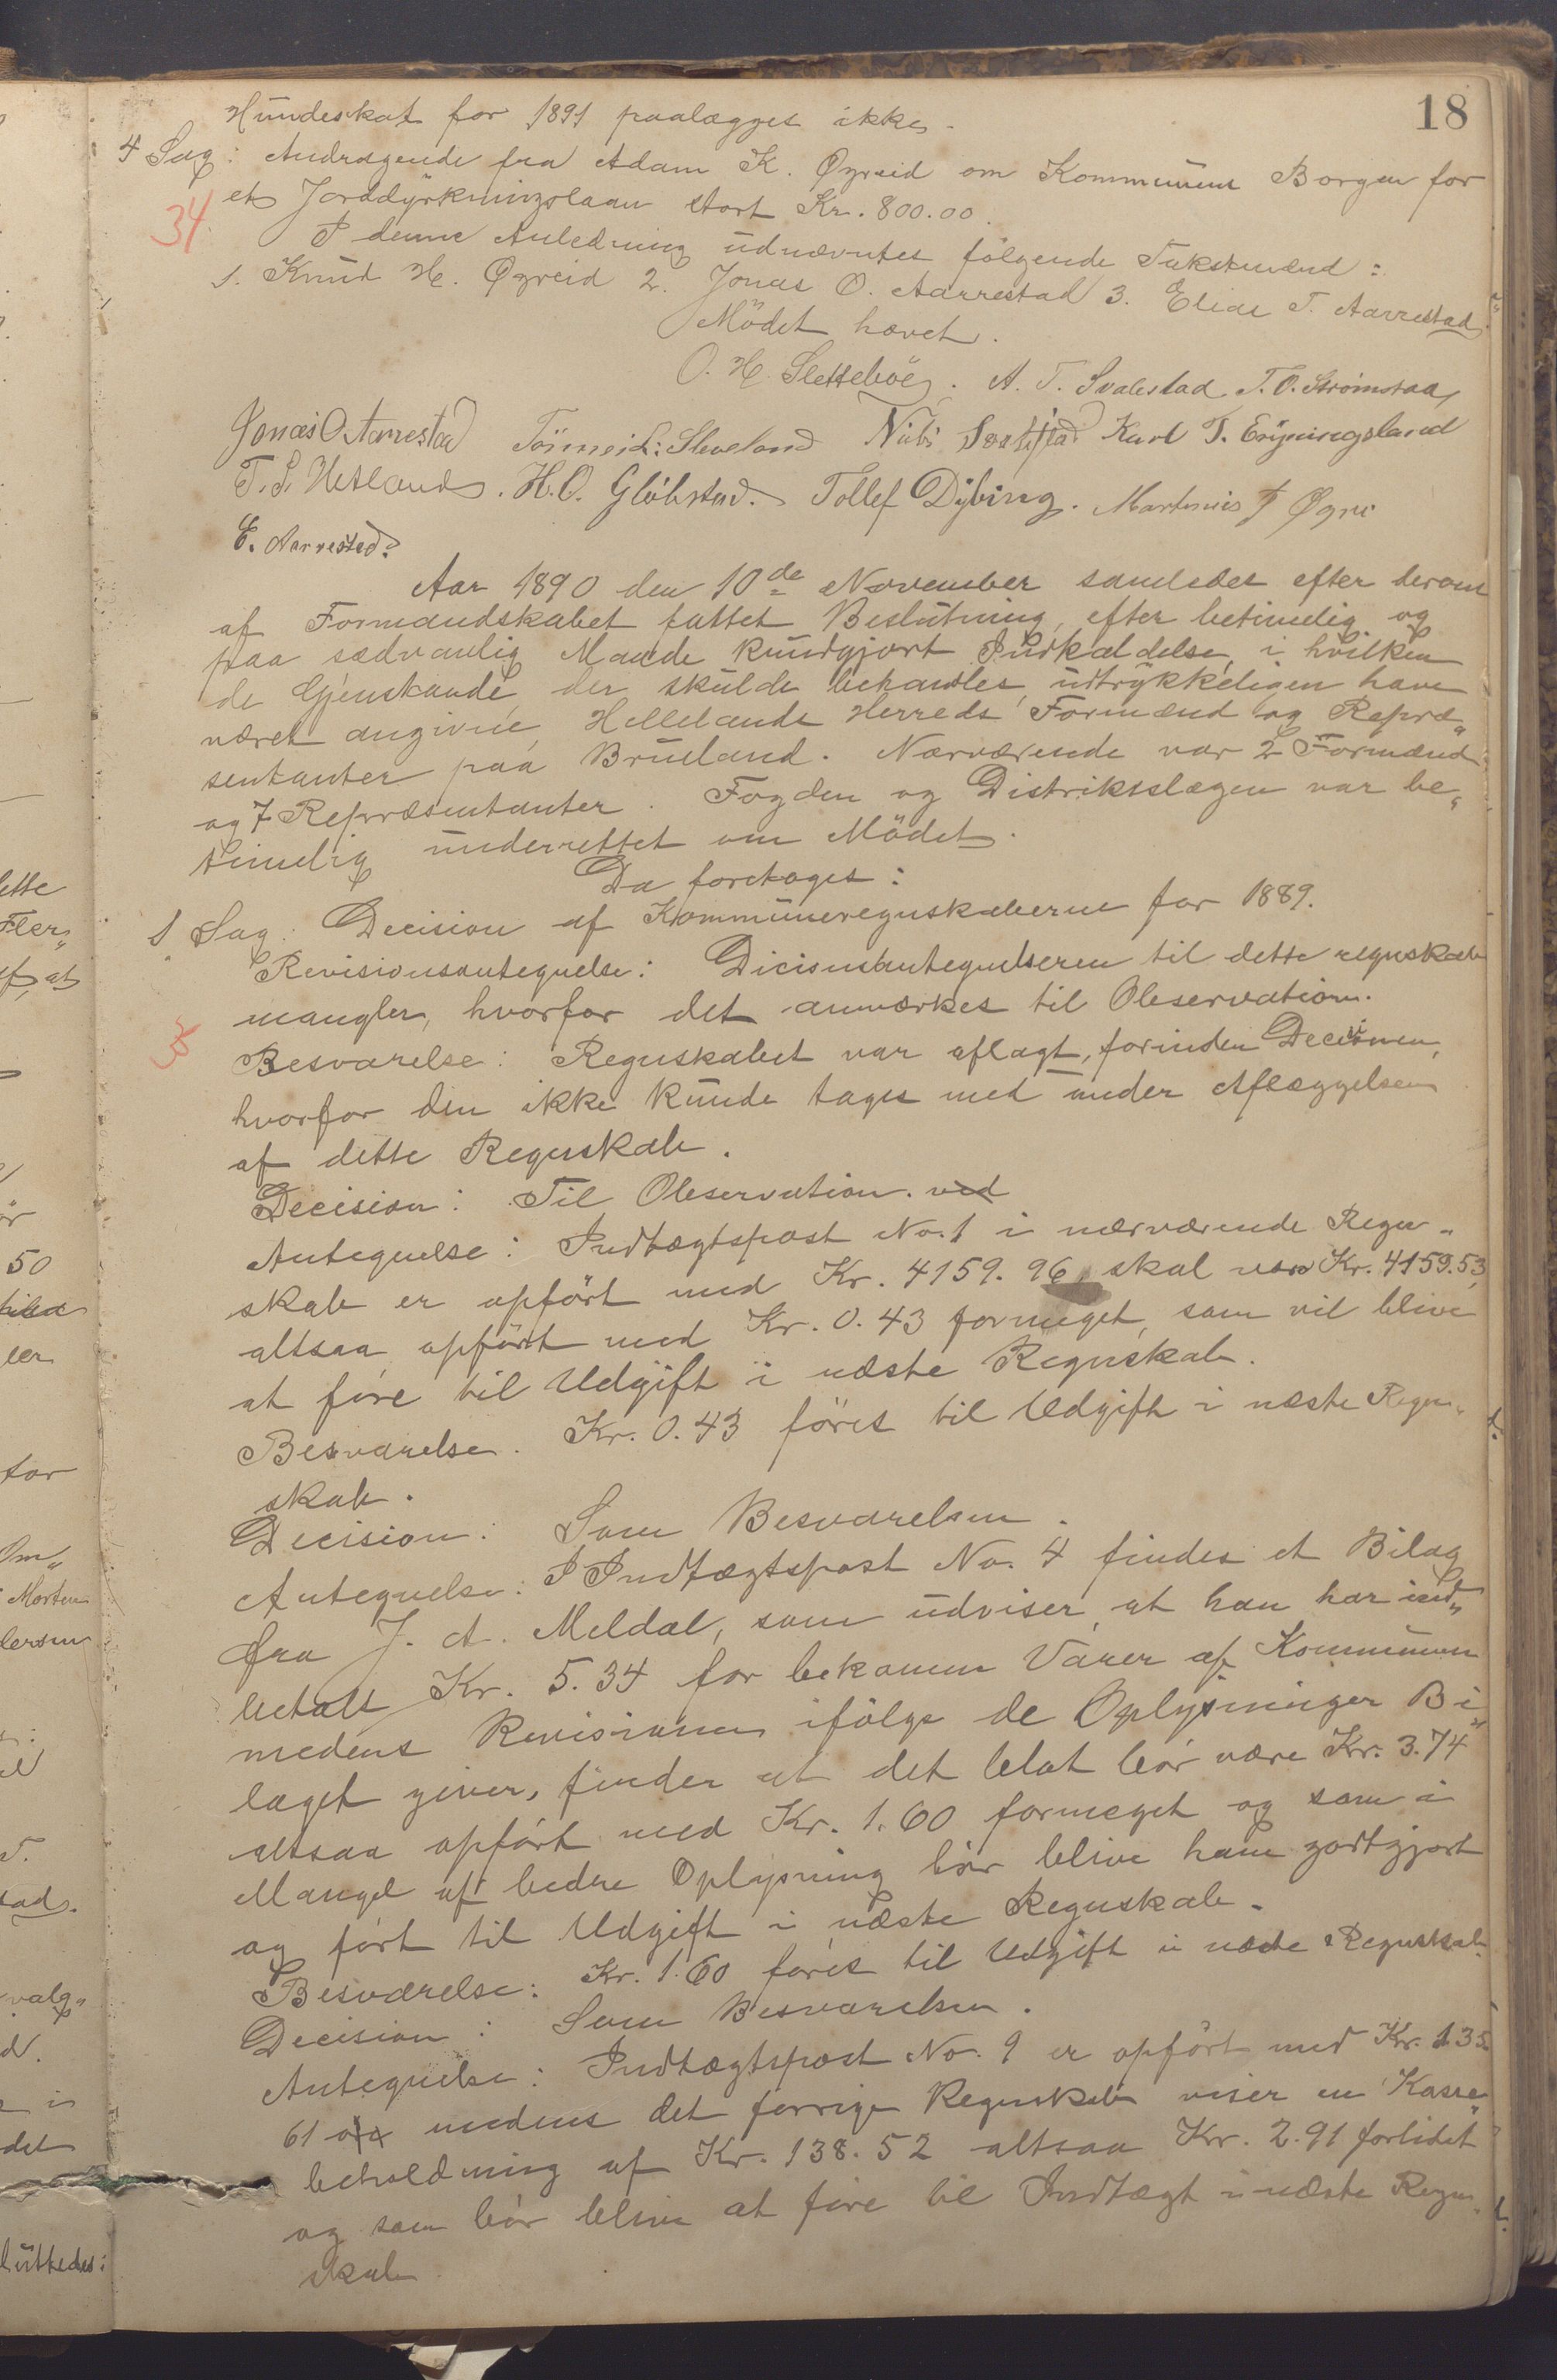 18
Hundeskat for 1891 paalægges ikke.
4 Sag: Andragende fra Adam K. Øgreid om Kommunens Borgen for
34
et Jorddyrkningslaan stort Kr. 800.00.
I denne Anledning udnævntes følgende Takstmænd:
1. Knud H. Øgreid 2. Jonas O. Aarrestad 3. Elias T. Aarrestad.
Mödet hævet.
O. H. Slettebøe. A. T. Svalestad T. O. Strømstaa,
Jonas O Aarrestad Tönnes Sleveland Nils Svalestad Karl T. Eeg
T. S. Hetland. H. O. Gløbstad. Tollef Dybing. Martinius T Øgre
E. Aarrestad.
Aar 1890 den 10de November samledes efter derom
af Formandskabet fattet Beslutning, efter betimelig og
paa sædvanlig Maade kundgjort Indkaldelse, i hvilken
de Gjenstande, der skulde behandles udtrykkeligen have
været angivne, Hellelands Herreds Formænd og Repræ„
sentanter paa Brueland. Nærværende var 2 Formænd
og 7 Repræsentanter. Fogden og Distriktslægen var be„
timelig underrettet om Mödet.
Da foretoges:
1 Sag: Decision af Kommuneregnskaberne for 1889.
Revisionsantegnelse: Dicisionsantegnelseren til dette regnskab
mangler, hvorfor det anmærkes til Observation.
35
Besvarelse: Regnskabet var aflagt, forinden Decisionen,
hvorfor den ikke kunde tages med under Aflæggelsen
af dette Regnskab.
Decision: Til Observation. ved
Antegnelse: Indtægtspost No. 1 i nærværende Regn„
skab er opfört med Kr. 4159.96, skal være Kr. 4159.53,
altsaa opfört med Kr. 0.43 formeget, som vil blive
at före til Udgift i næste Regnskab.
Besvarelse. Kr. 0.43 föres til Udgift i næste Regn„
skab.
Decision: Som Besvarelsen.
Antegnelse: I Indtægtspost No. 4 findes et Bilag
fra J. A. Meldal, som udviser, at han har ind„
betalt Kr. 5.34 for bekomne Varer af Kommunen
medens Revisionen ifölge de Oplysninger Bi„
laget giver, finder at det blot bör være Kr. 3.74
altsaa opfört med Kr. 1.60 formeget og som i
Mangel af bedre Oplysning bör blive ham godtgjort
og fört til Udgift i næste Regnskab.
Besvarelse: Kr. 1.60 föres til Udgift i næste Regnskab.
Decision: Som Besvarelsen.
Antegnelse: Indtægtspost No. 9 er opfört med Kr. 135.
61 medens det forrige Regnskab viser en Kasse„
beholdning af Kr. 138.52 altsaa Kr. 2.91 forlidet
og som bör blive at före til Indtægt i næste Regn„
skab